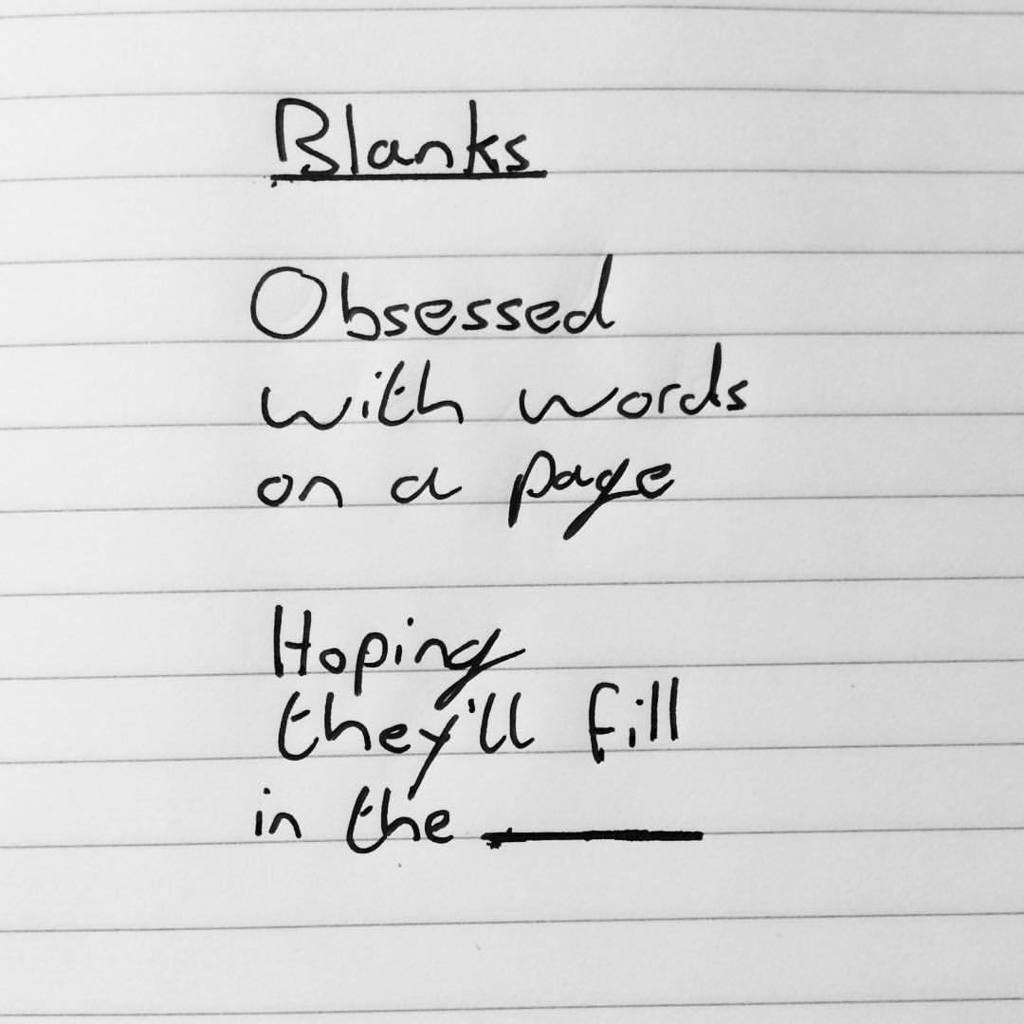 Blanks
Obsessed
with words
on a page
Hoping
they'll fill
in the ______